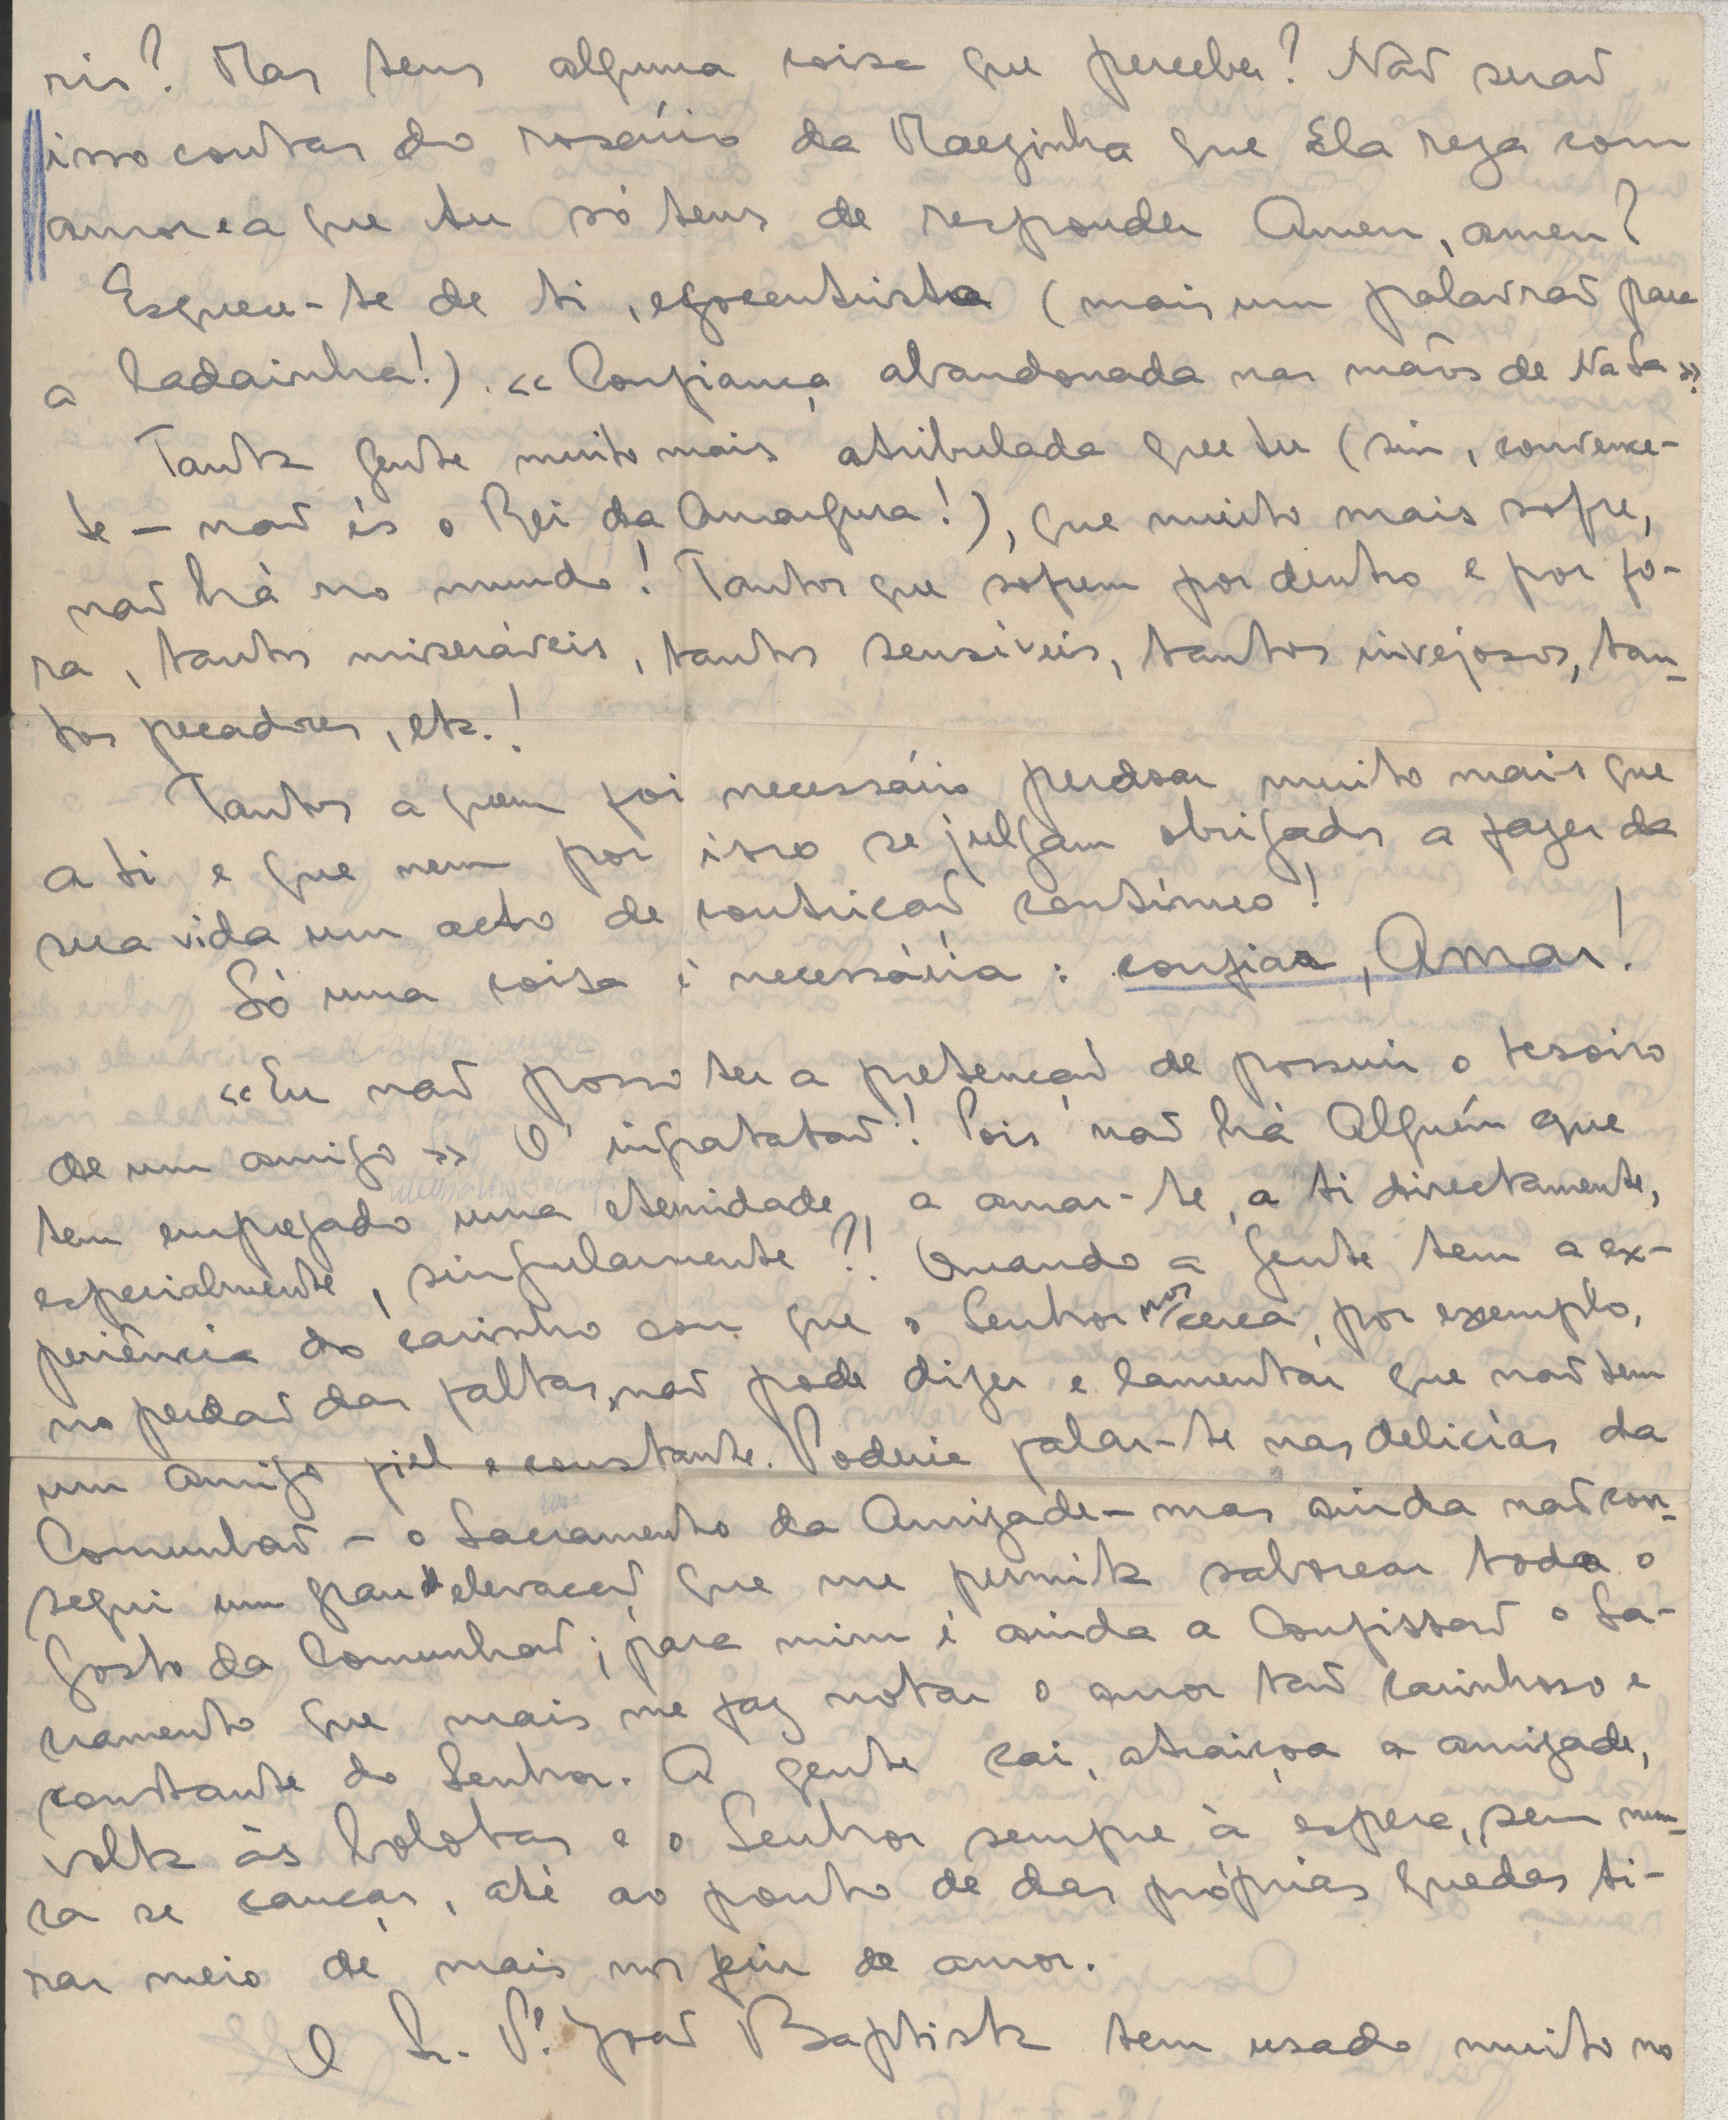 ris? Mas tens alguma coisa que perceber? Não serão
isso contas do rosário da Mãezinha que Ela reza com
amor e a que tu só tens de responder Amen, amen?
Esquece-te de ti, egocentrista (mais um palavrão para
a ladainha!). «Confiança abandonada nas mãos de Na Sa».
Tanta gente muito mais atribulada que tu (sim, convence-
te - não és o Rei da Amargura!), que muito mais sofre,
não há no mundo! Tantos que sofrem por dentro e por fo-
ra, tantos miseráveis, tantos sensíveis, tantos invejosos, tan-
tos pecadores, etc.!
Tantos a quem foi necessário perdoar muito mais que
a ti e que nem por isso se julgam obrigados a fazer da
sua vida um acto de contrição contínuo!
Só uma coisa é necessária: confiar, Amar!
«Eu não posso ter a pretenção de possuir o tesoiro
de um amigo» Ó ingratatão! Pois não há Alguém que
tem empregado uma eternidade, a amar-te, a ti directamente,
especialmente, singularmente?! Quando a gente tem a ex-
periência do carinho com que o Senhor nos cerca, por exemplo,
no perdão das faltas, não pode dizer e lamentar que não tem
um amigo fiel e constante. Poderia falar-te nas delícias da
Comunhão - o Sacramento da Amizade - mas ainda não con-
segui um grau de elevação que me permita saborear todo o
gosto da Comunhão; para mim é ainda a Confissão o Sa-
cramento que mais me faz notar o amor tão carinhoso e
constante do Senhor. A gente cai, atraiçoa a amizade,
volta às bolotas e o Senhor sempre à espera, sem nun-
ca se cançar, até ao ponto de das próprias quedas ti-
rar meio de mais nos ferir de amor.
O Sr. P.e João Baptista tem usado muito no